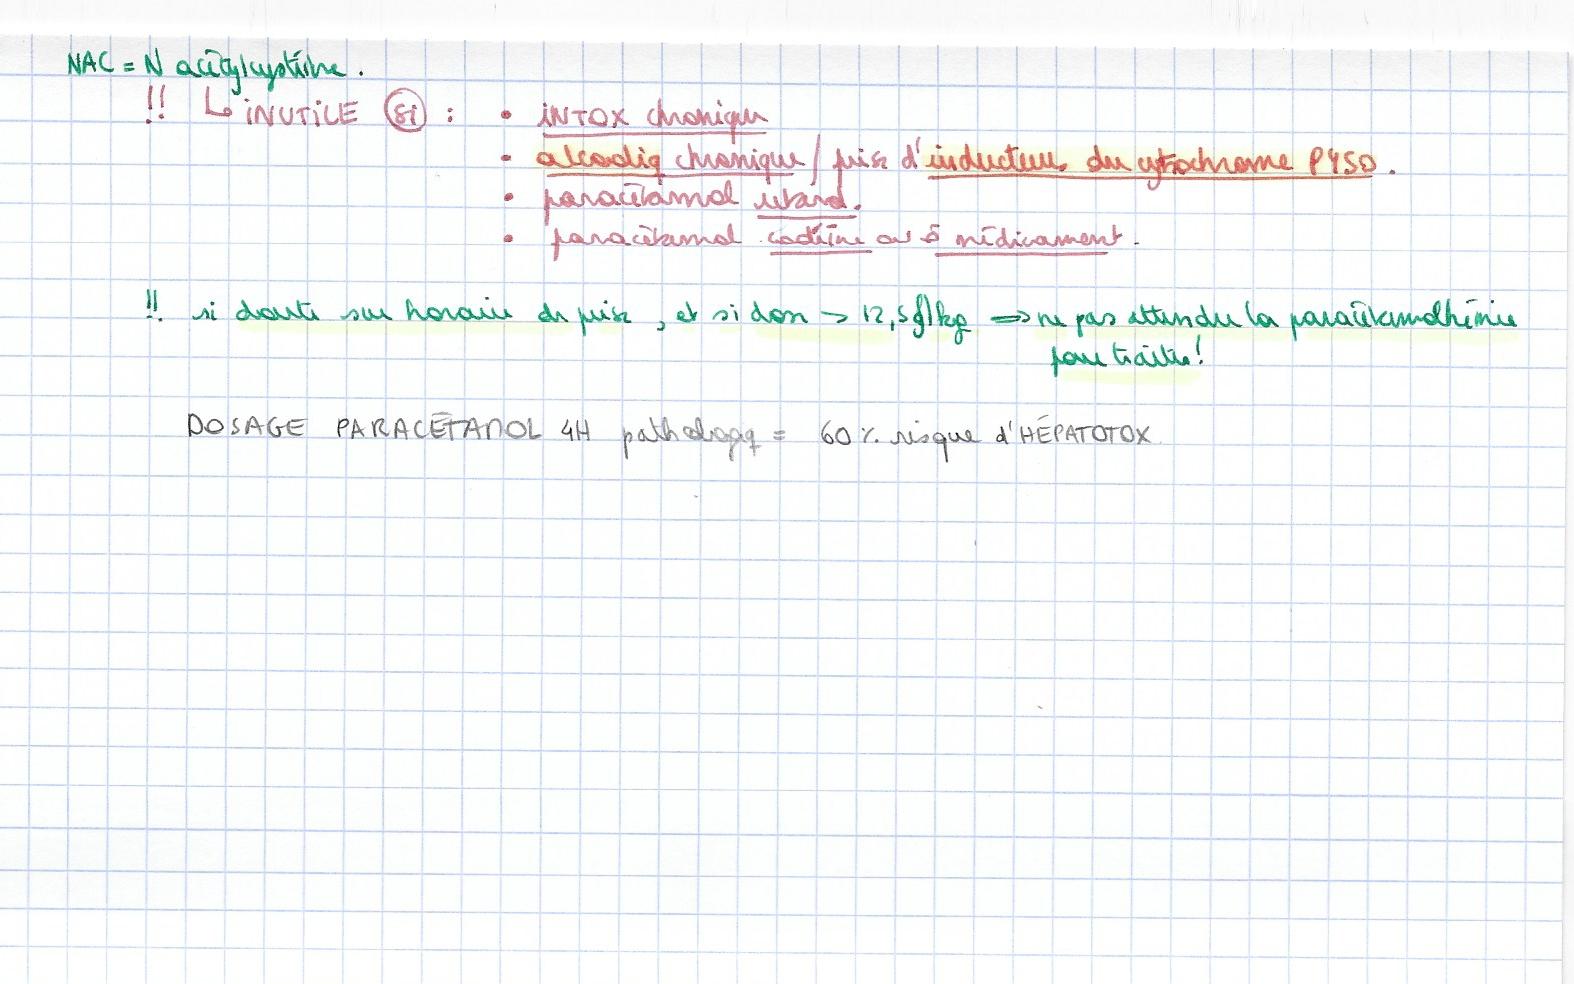 NAC = N acétylcystéine.
!! ↳ INUTILE (si) : • INTOX chronique
• alcooliq chronique / prise d'inducteur du cytochrome P450.
• paracétamol retard.
• paracétamol codéine ou médicament.
!! si doute sur horaire de prise, et si don → 12,5g/kg ⇒ ne pas attendre la paracétamolhémie
pour traiter!
DOSAGE PARACÉTAMOL 4H pathologq = 60% risque d'HÉPATOTOX